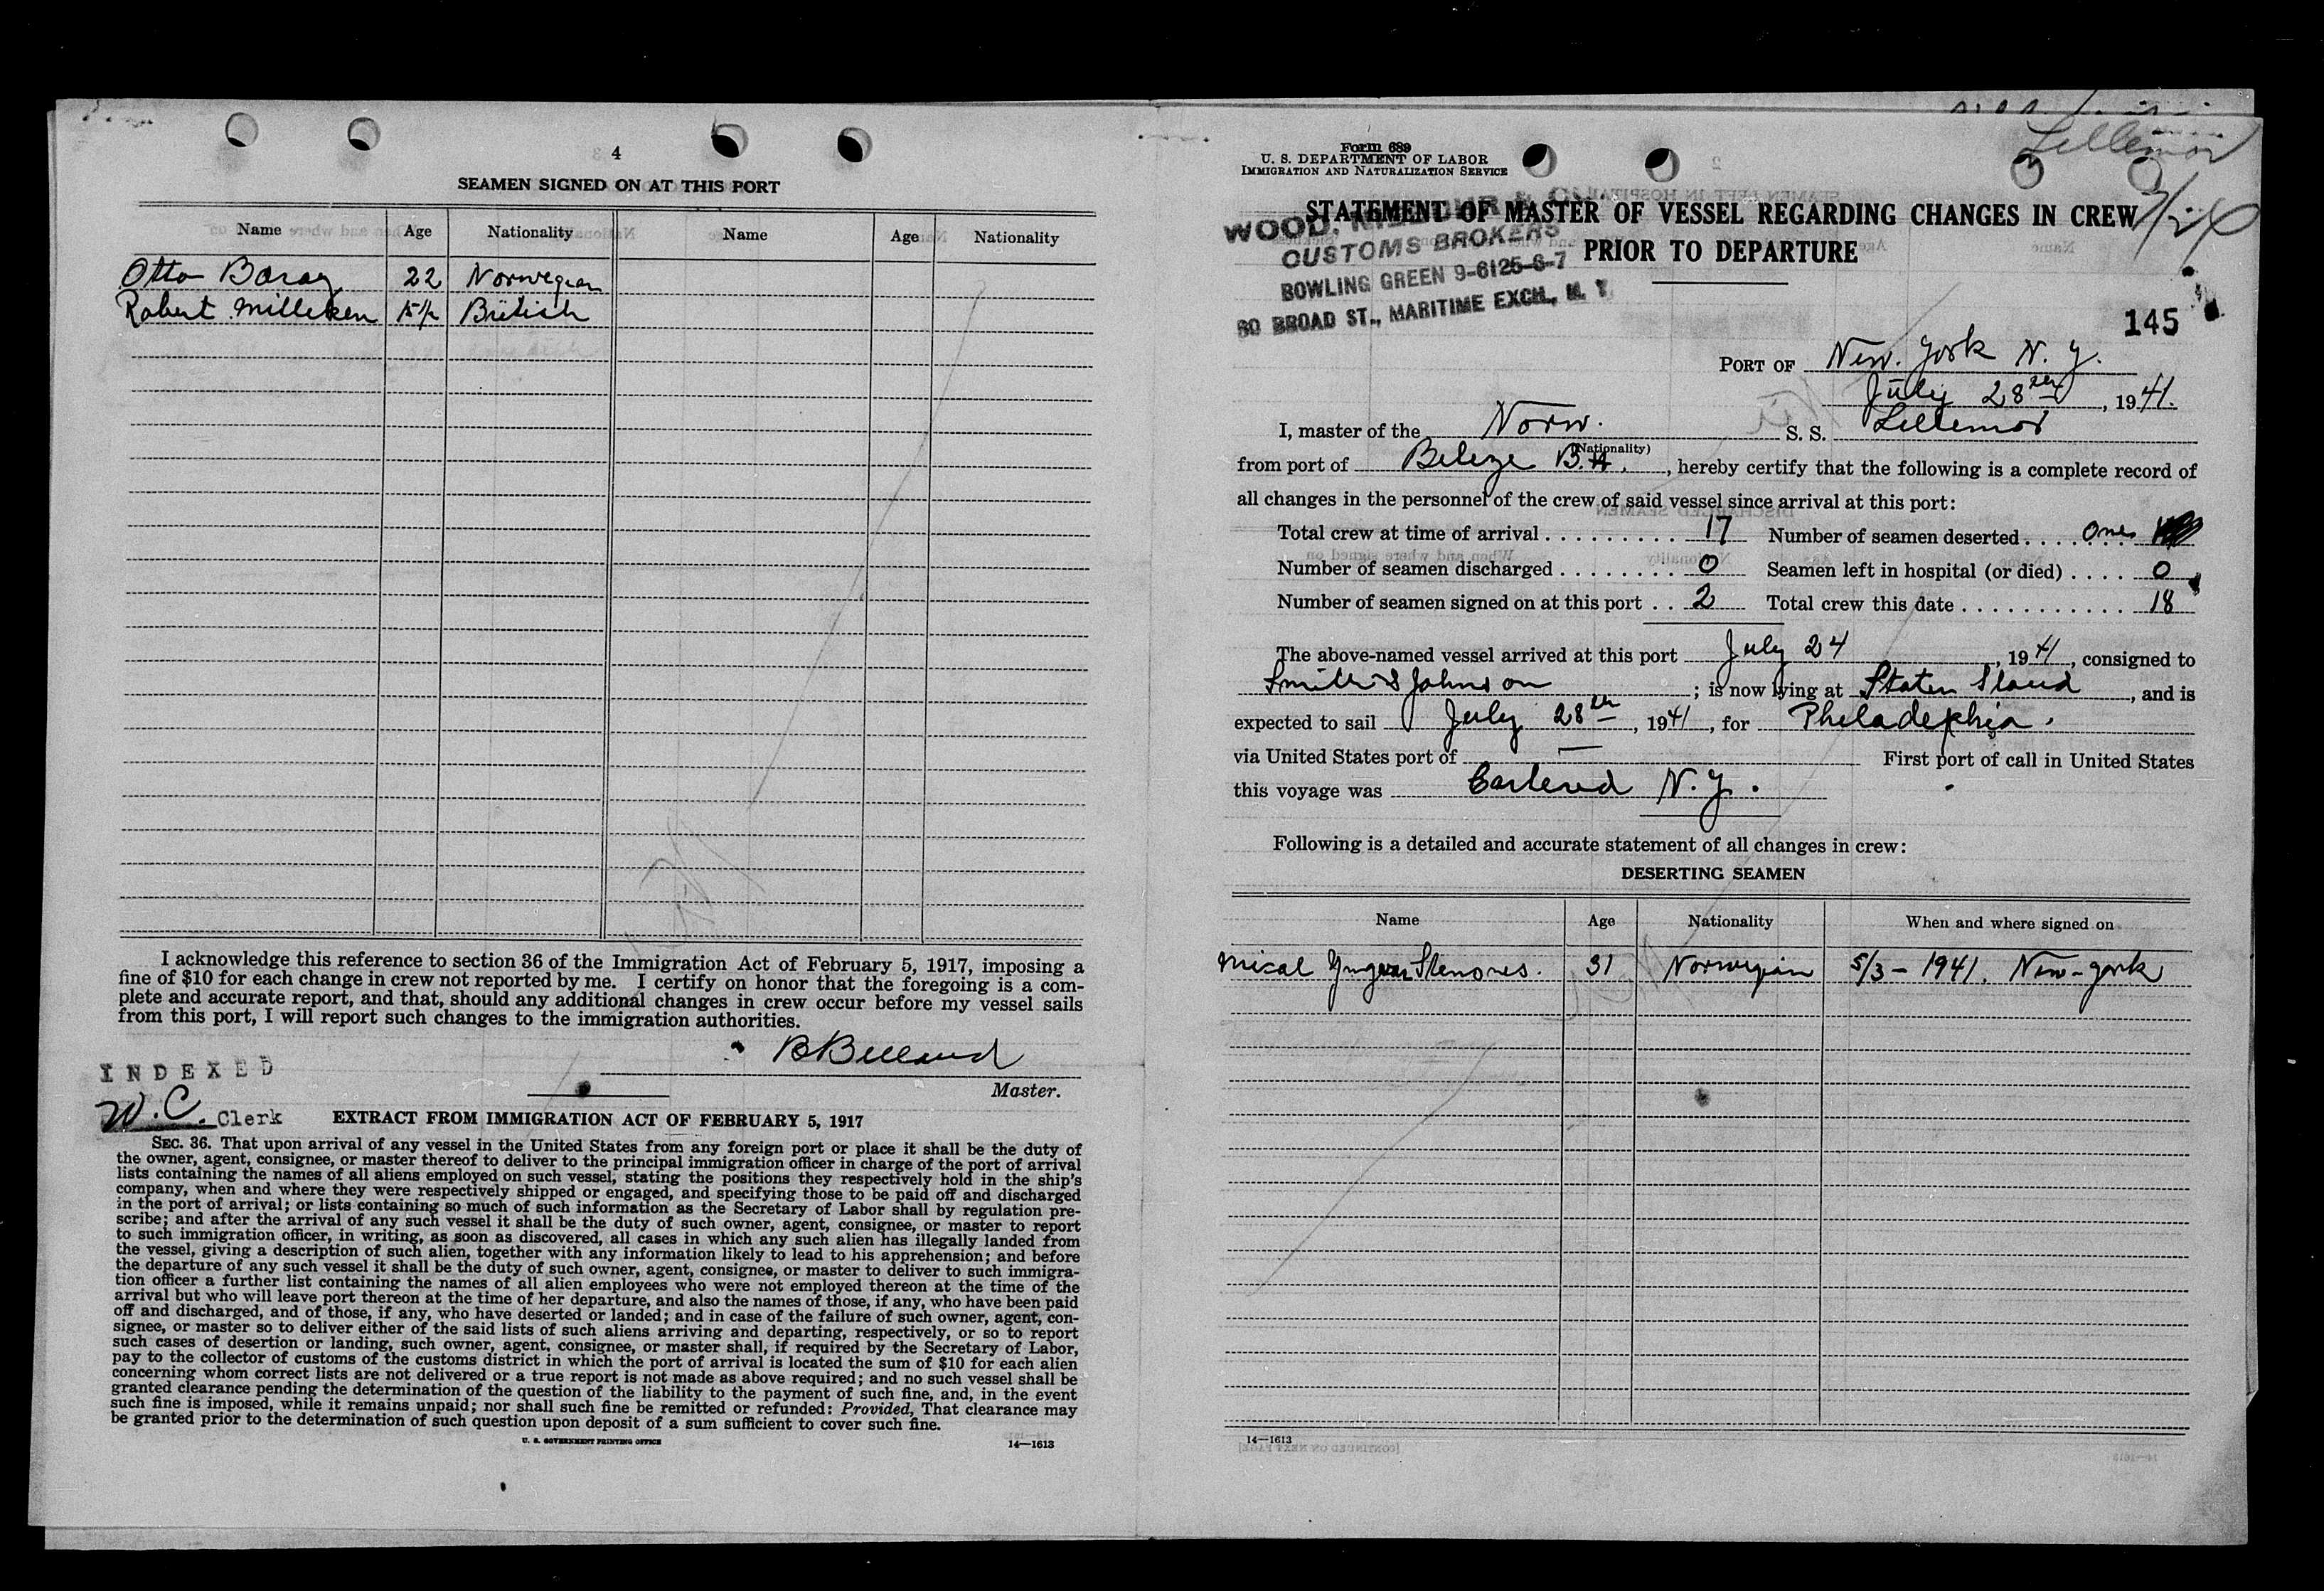 4
SEAMEN SIGNED ON AT THIS PORT
Name Age Nationality Name Age Nationality
Otto 22 Norwegian
Robert Milliken 15½ British
I acknowledge this reference to section 36 of the Immigration Act of February 5, 1917, imposing a
fine of $10 for each change in crew not reported by me. I certify on honor that the foregoing is a com-
plete and accurate report, and that, should any additional changes in crew occur before my vessel sails
from this port, I will report such changes to the immigration authorities.
INDEXED
Master.
W.C. Clerk
EXTRACT FROM IMMIGRATION ACT OF FEBRUARY 5, 1917
SEC. 36. That upon arrival of any vessel in the United States from any foreign port or place it shall be the duty of
the owner, agent, consignee, or master thereof to deliver to the principal immigration officer in charge of the port of arrival
lists containing the names of all aliens employed on such vessel, stating the positions they respectively hold in the ship's
company, when and where they were respectively shipped or engaged, and specifying those to be paid off and discharged
in the port of arrival; or lists containing so much of such information as the Secretary of Labor shall by regulation pre-
scribe; and after the arrival of any such vessel it shall be the duty of such owner, agent, consignee, or master to report
to such immigration officer, in writing, as soon as discovered, all cases in which any such alien has illegally landed from
the vessel, giving a description of such alien, together with any information likely to lead to his apprehension; and before
the departure of any such vessel it shall be the duty of such owner, agent, consignee, or master to deliver to such immigra-
tion officer a further list containing the names of all alien employees who were not employed thereon at the time of the
arrival but who will leave port thereon at the time of her departure, and also the names of those, if any, who have been paid
off and discharged, and of those, if any, who have deserted or landed; and in case of the failure of such owner, agent, con-
signee, or master so to deliver either of the said lists of such aliens arriving and departing, respectively, or so to report
such cases of desertion or landing, such owner, agent, consignee, or master shall, if required by the Secretary of Labor,
pay to the collector of customs of the customs district in which the port of arrival is located the sum of $10 for each alien
concerning whom correct lists are not delivered or a true report is not made as above required; and no such vessel shall be
granted clearance pending the determination of the question of the liability to the payment of such fine, and, in the event
such fine is imposed, while it remains unpaid; nor shall such fine be remitted or refunded: Provided, That clearance may
be granted prior to the determination of such question upon deposit of a sum sufficient to cover such fine.
U. S. GOVERNMENT PRINTING OFFICE 14—1613
Lillemor
Form 689
U. S. DEPARTMENT OF LABOR
IMMIGRATION AND NATURALIZATION SERVICE
STATEMENT OF MASTER OF VESSEL REGARDING CHANGES IN CREW
PRIOR TO DEPARTURE
WOOD,
CUSTOMS BROKERS
BOWLING GREEN 9-6125-6-7
80 BROAD ST., MARITIME EXCH., N. Y.
145
PORT OF New York N. Y.
July 28th, 1941.
I, master of the Norw. S. S. Lillemor
(Nationality)
from port of Belize B.H., hereby certify that the following is a complete record of
all changes in the personnel of the crew of said vessel since arrival at this port:
Total crew at time of arrival 17 Number of seamen deserted One
Number of seamen discharged 0 Seamen left in hospital (or died) 0
Number of seamen signed on at this port 2 Total crew this date 18
The above-named vessel arrived at this port July 24, 1941, consigned to
Smith & Johnson; is now lying at Staten Island, and is
expected to sail July 28th, 1941, for Philadephia.
via United States port of — First port of call in United States
this voyage was N.Y.
Following is a detailed and accurate statement of all changes in crew:
DESERTING SEAMEN
Name Age Nationality When and where signed on
Mikal Yngvar 31 Norwegian 5/3-1941. New-york
14—1613